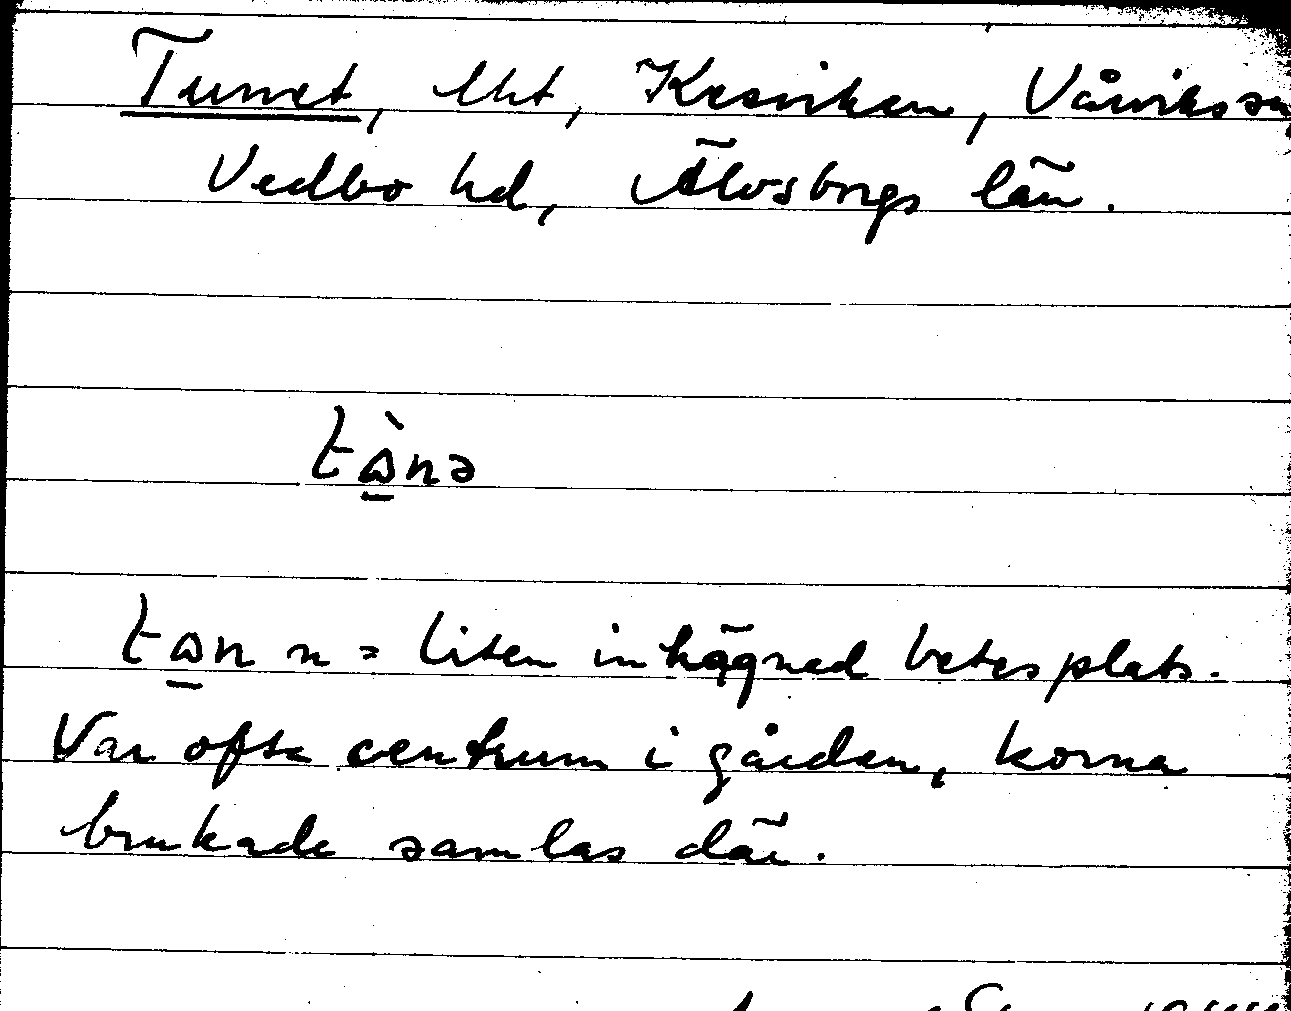 Tunet, lht, Kesviken, Vårviks sn,
Vedbo hd, Älvsborgs län.
tὼnə
tωn n = liten inhägnad betesplats.
Var ofta centrum i gården, korna
brukade samlas där.